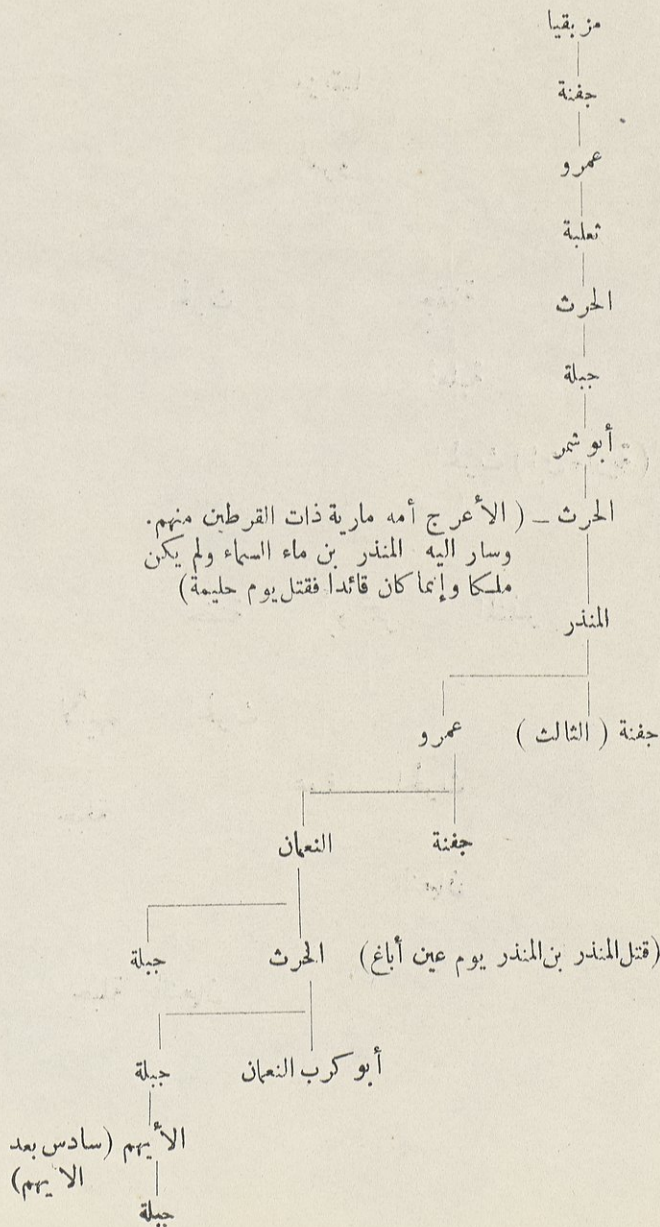 مزيقيا
جفنة
عمرو
ثعلبة
الحرث
جبلة
أبو شمر
الحرث – ( الأعرج أمه مارية ذات القرطين منهم.
وسار اليه المنذر بن ماء السماء ولم يكن
ملكا وإنما كان قائدا فقتل يوم حليمة)
المنذر
جفنة ( الثالث ) عمرو
جفنة النعمان
(قتل المنذر بن المنذر يوم عين أباغ) الحرث جبلة
أبو كرب النعمان جبلة
الأيهم (سادس بعد
الايهم)
جبلة